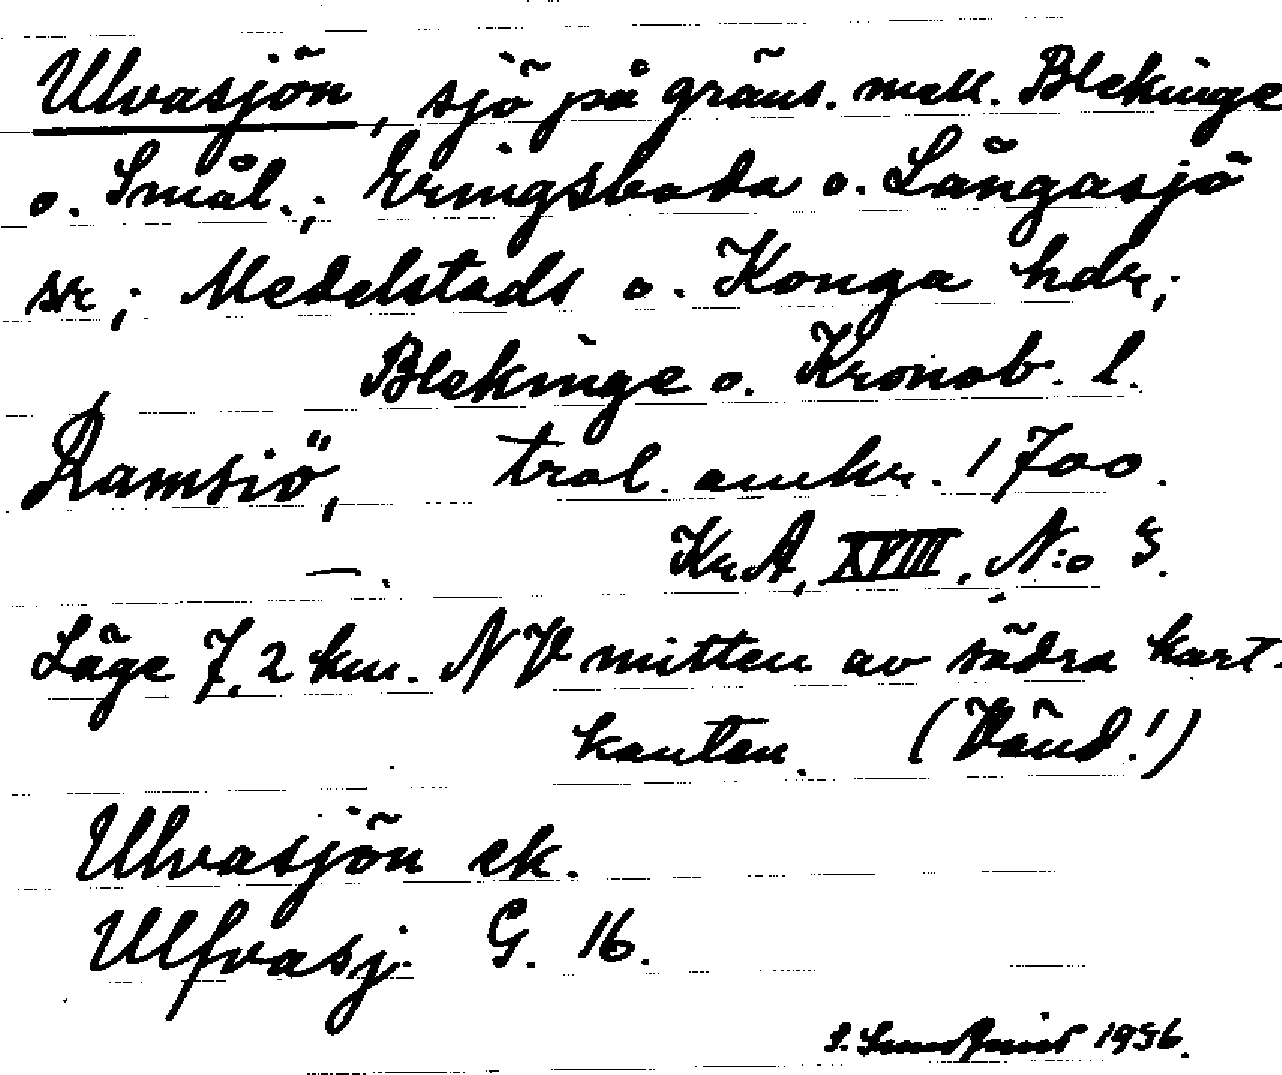 Ulvasjön, sjö på gräns. mell. Blekinge
o. Smål.; Eringsboda o. Långasjö
snr; Medelstads o. Konga hdr;
Blekinge o. Kronob. l.
Ramsiö, trol. omkr. 1700.
—. KrA, XVIII, N:o 5.
Läge 7,2 km. NV mitten av södra kart-
kanten. (Vänd!)
Ulvasjön ek.
Ulfvasj. G. 16.
S. Sundqvist 1956.